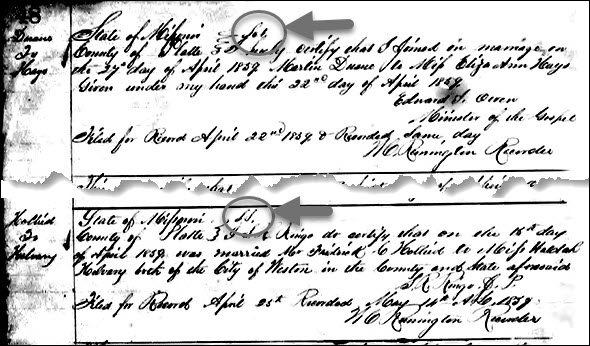 Duane
To
Hays
State of Missouri } Sct
County of Platte } I hereby certify that I Joined in marriage on
the day of April 1859 Martin Duane to Miss Eliza Ann Hays
Given under my hand this 22nd day of April 1859
Edward Owen
Minister of the Gospel
Filed for Record April 22nd 1859 & Recorded same day
W.C. Remington Recorder
Hollied
To
State of Missouri } SS.
County of Platte } I Ringo do certify that on the day
of April 1859 was married Mr Fredrick C Hollied to Miss
both of the City of Weston in the County and State aforesaid
Ringo J. P.
Filed for Record April 25th Recorded May 14th A.D. 1859
W.C. Remington Recorder